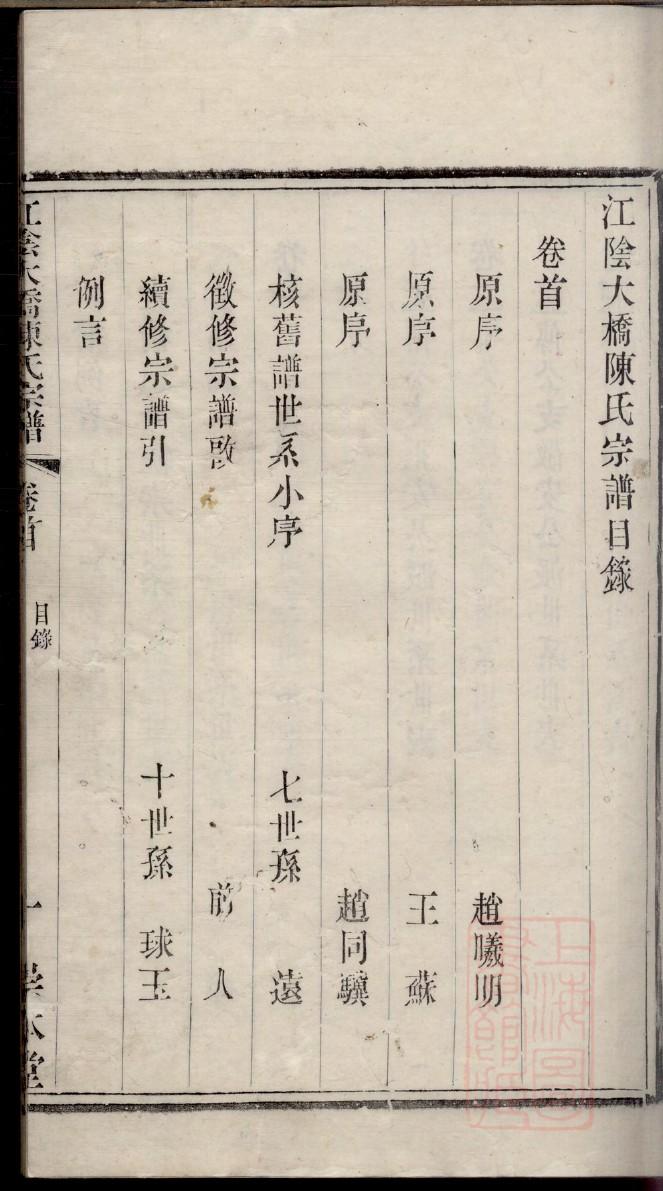 江陰大橋陳氏宗譜目錄
卷首
原序 趙曦明
原序 王蘇
原序 趙同驥
核舊譜世系小序 七世孫 遠
徵修宗譜啟 前人
續修宗譜引 十世孫 球玉
例言
江陰大橋陳氏宗譜 卷首 目錄 一 崇本堂
上海圖書館藏